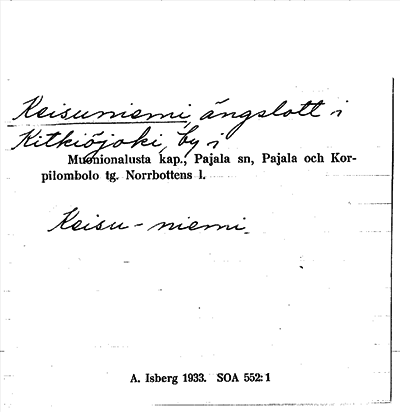 Keisuniemi, ängslott i
Kitkiöjoki, by i
Muonionalusta kap., Pajala sn, Pajala och Kor-
pilombolo tg. Norrbottens l.
Keisu-niemi.
A. Isberg 1933. SOA 552:1